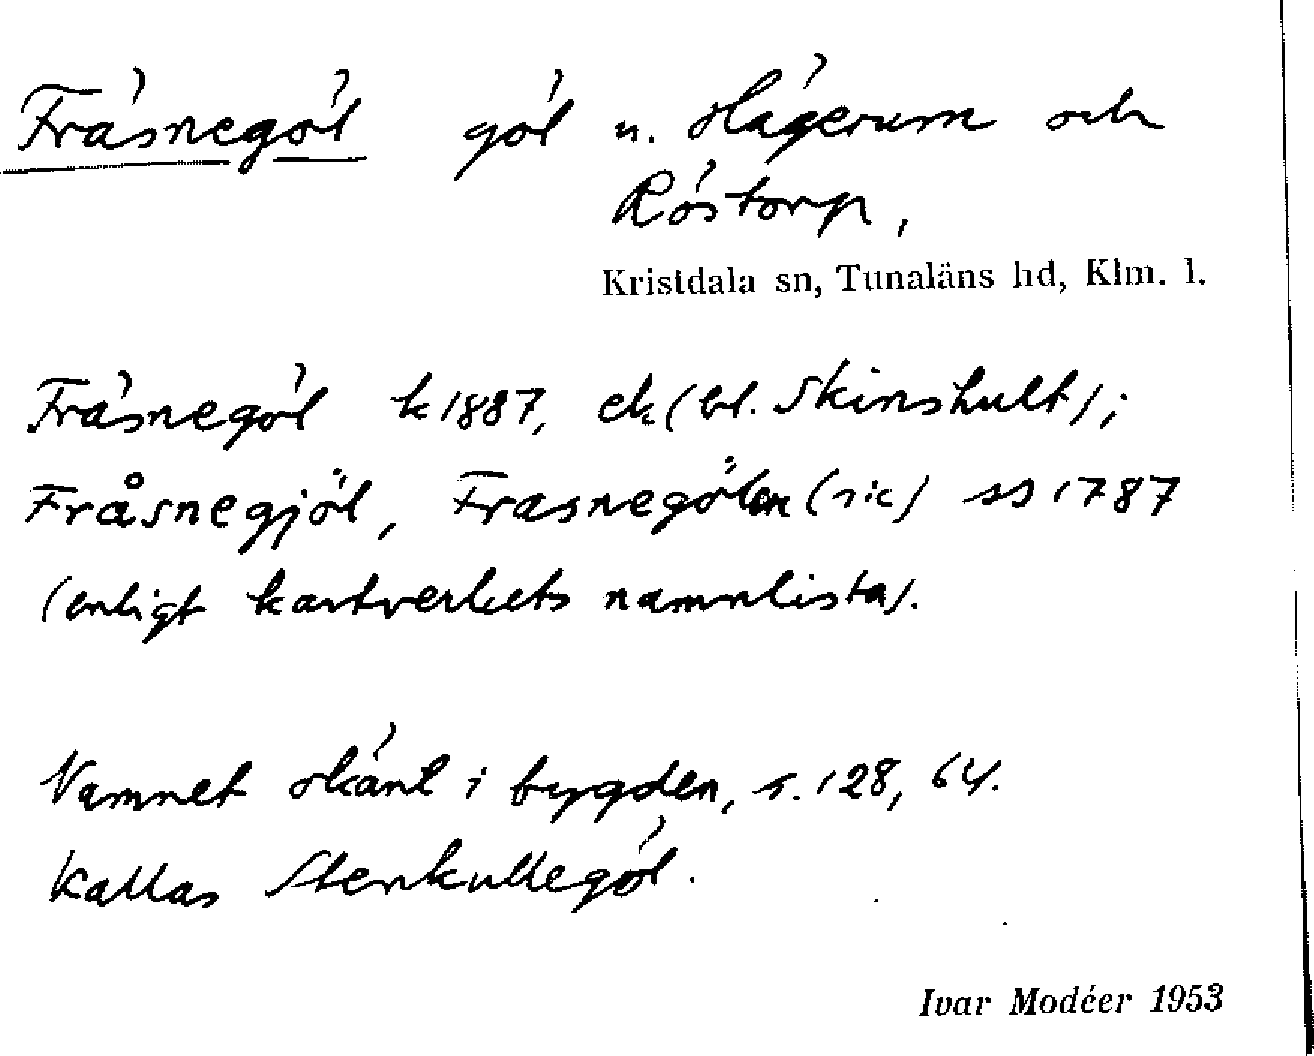 Fråsnegöl göl u. Hägerum och
Röstorp,
Kristdala sn, Tunaläns hd, Klm. l.
Fråsnegöl k 1887, ek (bl. Skinshult);
Fråsnegjöl, Frasnegölen (sic) ss 1787
(enligt kartverkets namnlista).
Namnet okänt i bygden, s. 128, 64.
Kallas Stenkullegöl.
Ivar Modéer 1953